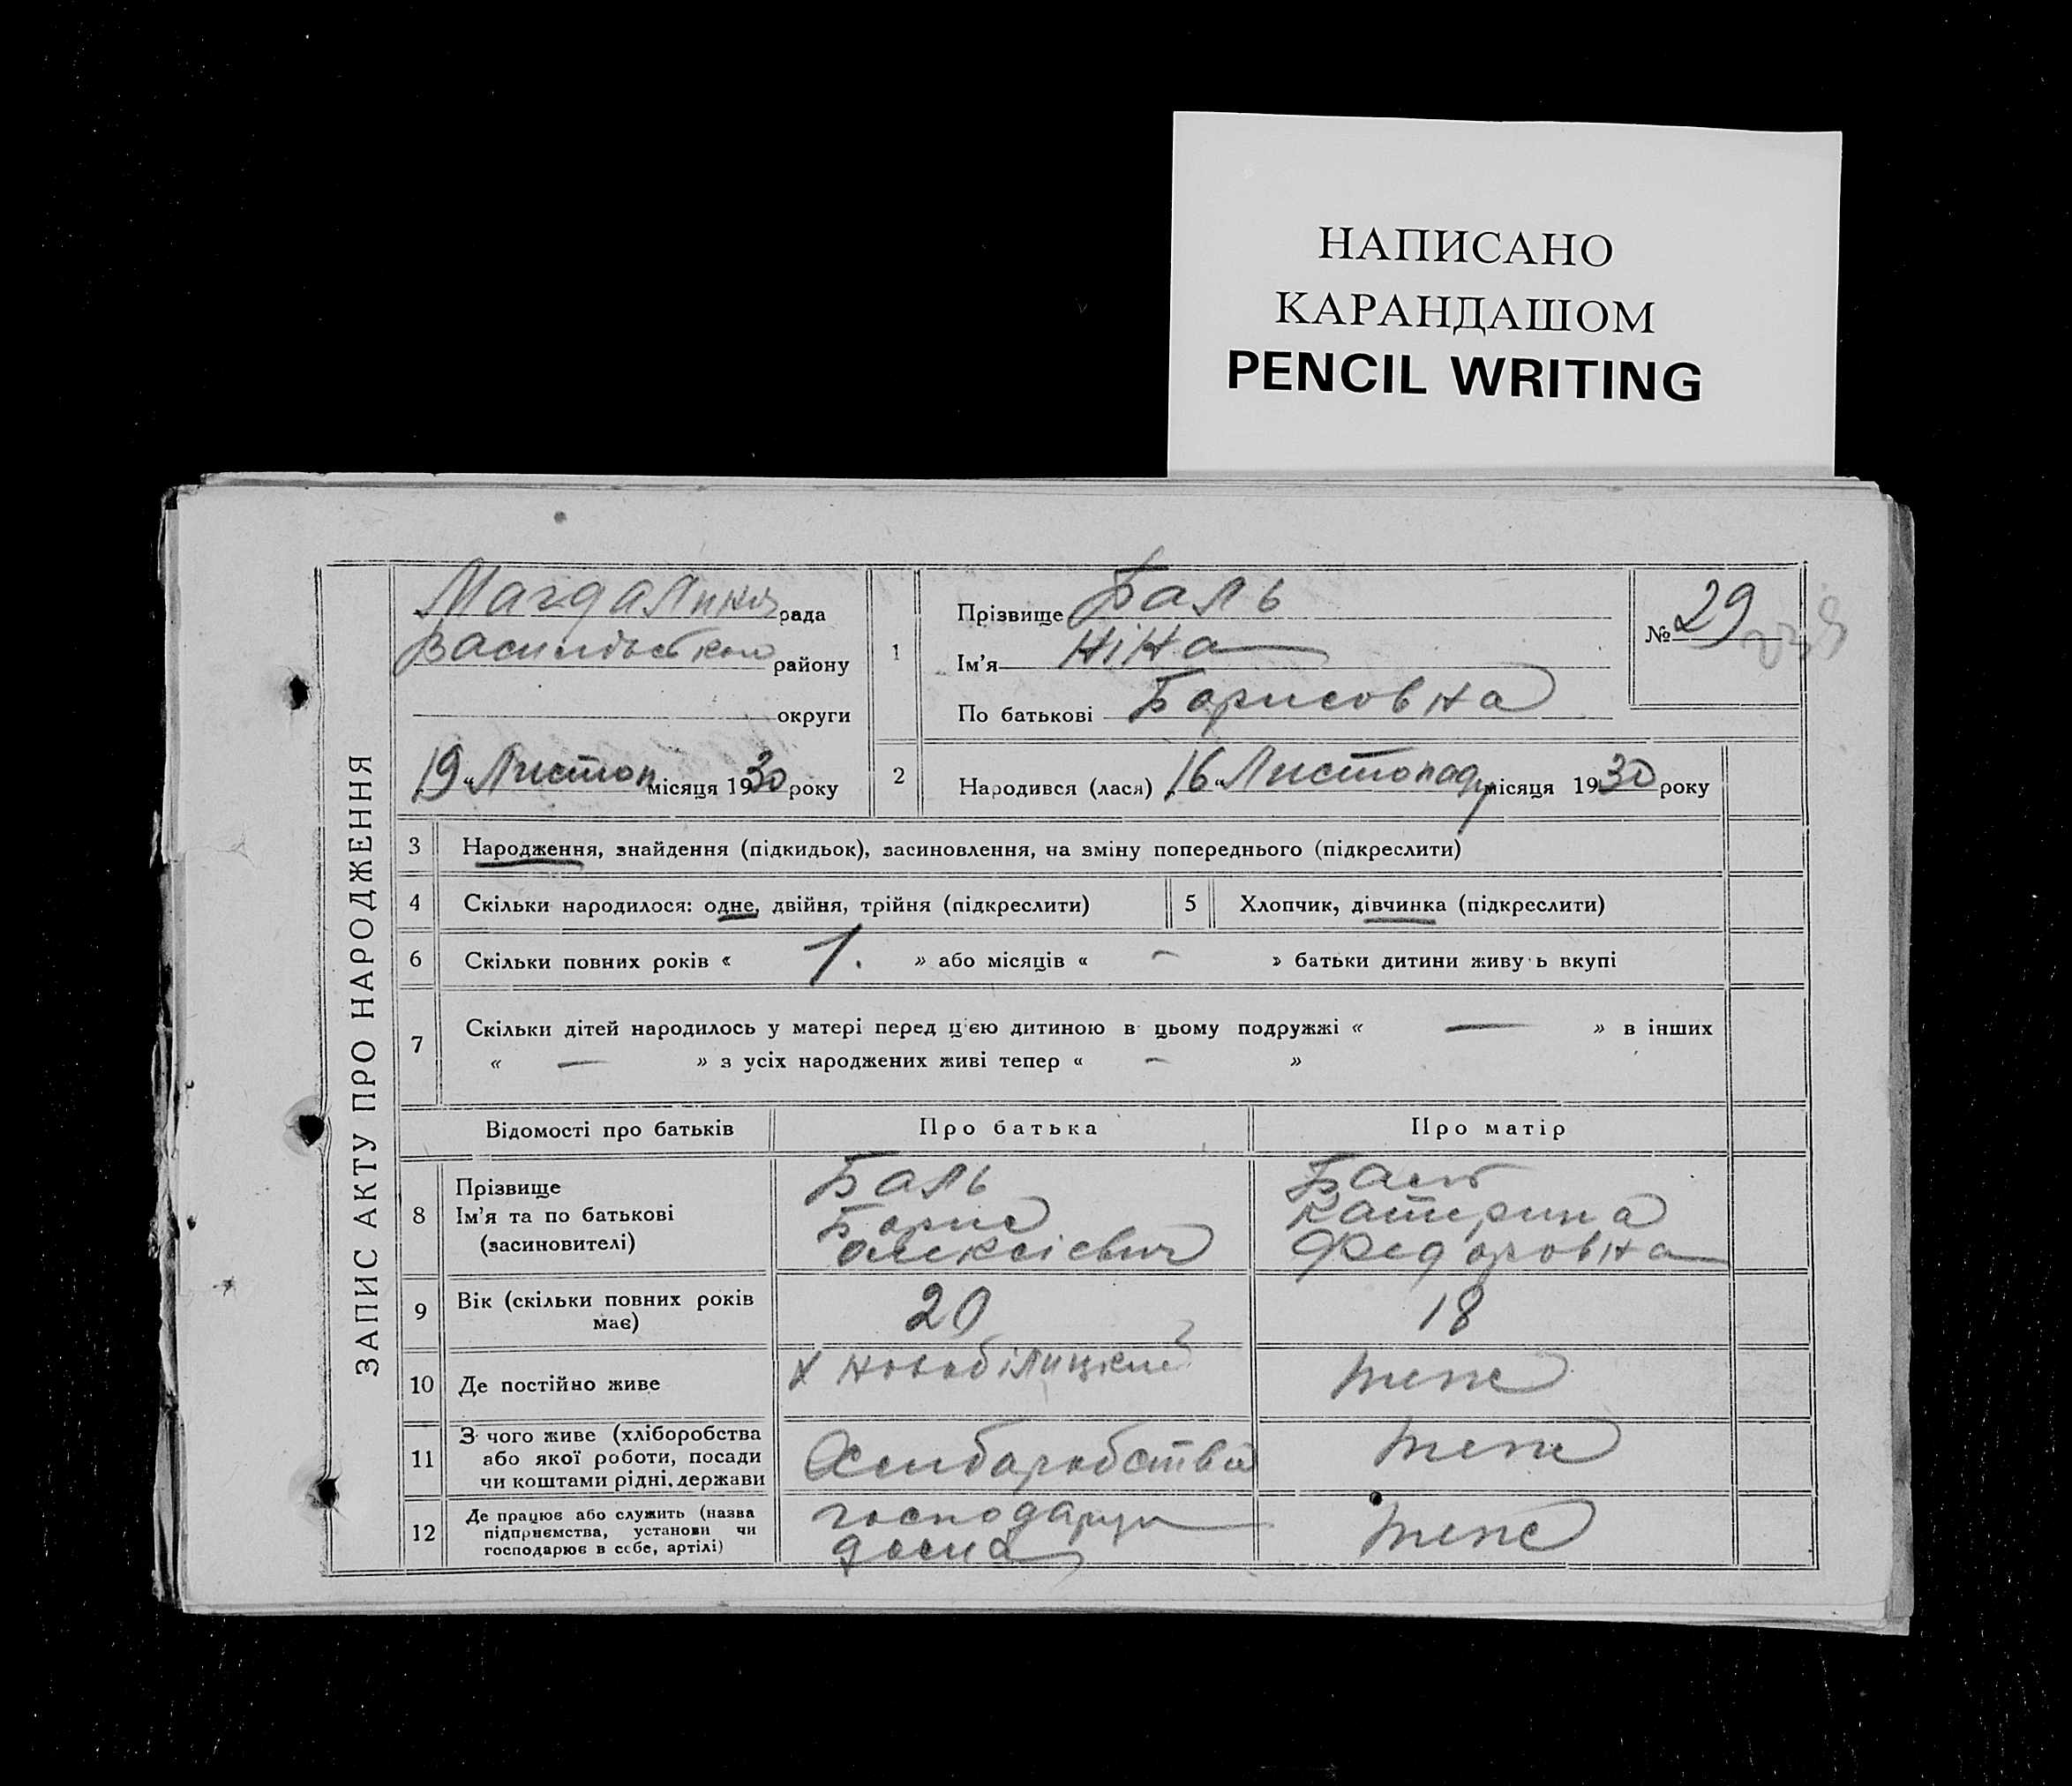 НАПИСАНО
КАРАНДАШОМ
PENCIL WRITING
ЗАПИС АКТУ ПРО НАРОДЖЕННЯ
рада
району
округи
19 „ Листоп місяця 1930 року
1
Прізвище Баль
Ім'я Ніна
По батькові Борисовна
№ 29
2
Народився (лася) 16 „ Листопаду місяця 1930 року
3 Народження, знайдення (підкидьок), засиновлення, на зміну попереднього (підкреслити)
4 Скільки народилося: одне, двійня, трійня (підкреслити)
5 Хлопчик, дівчинка (підкреслити)
6 Скільки повних років « 1. » або місяців « – » батьки дитини живу ь вкупі
7 Скільки дітей народилось у матері перед ц'єю дитиною в цьому подружжі « — » в інших
« — » з усіх народжених живі тепер « – »
Відомості про батьків
Про батька
Про матір
8
Прізвище
Ім'я та по батькові
(засиновителі)
Баль
Борис
Олексієвич
Баль
Катерина
Федоровна
9
Вік (скільки повних років
має)
20
18
10 Де постійно живе
х Новобілицкий
теж
11
З чого живе (хліборобства
або якої роботи, посади
чи коштами рідні, держави
Хлиборобства
теж
12
Де працює або служить (назва
підприємства, установи чи
господарює в себе, артілі)
господарує
дома
теже